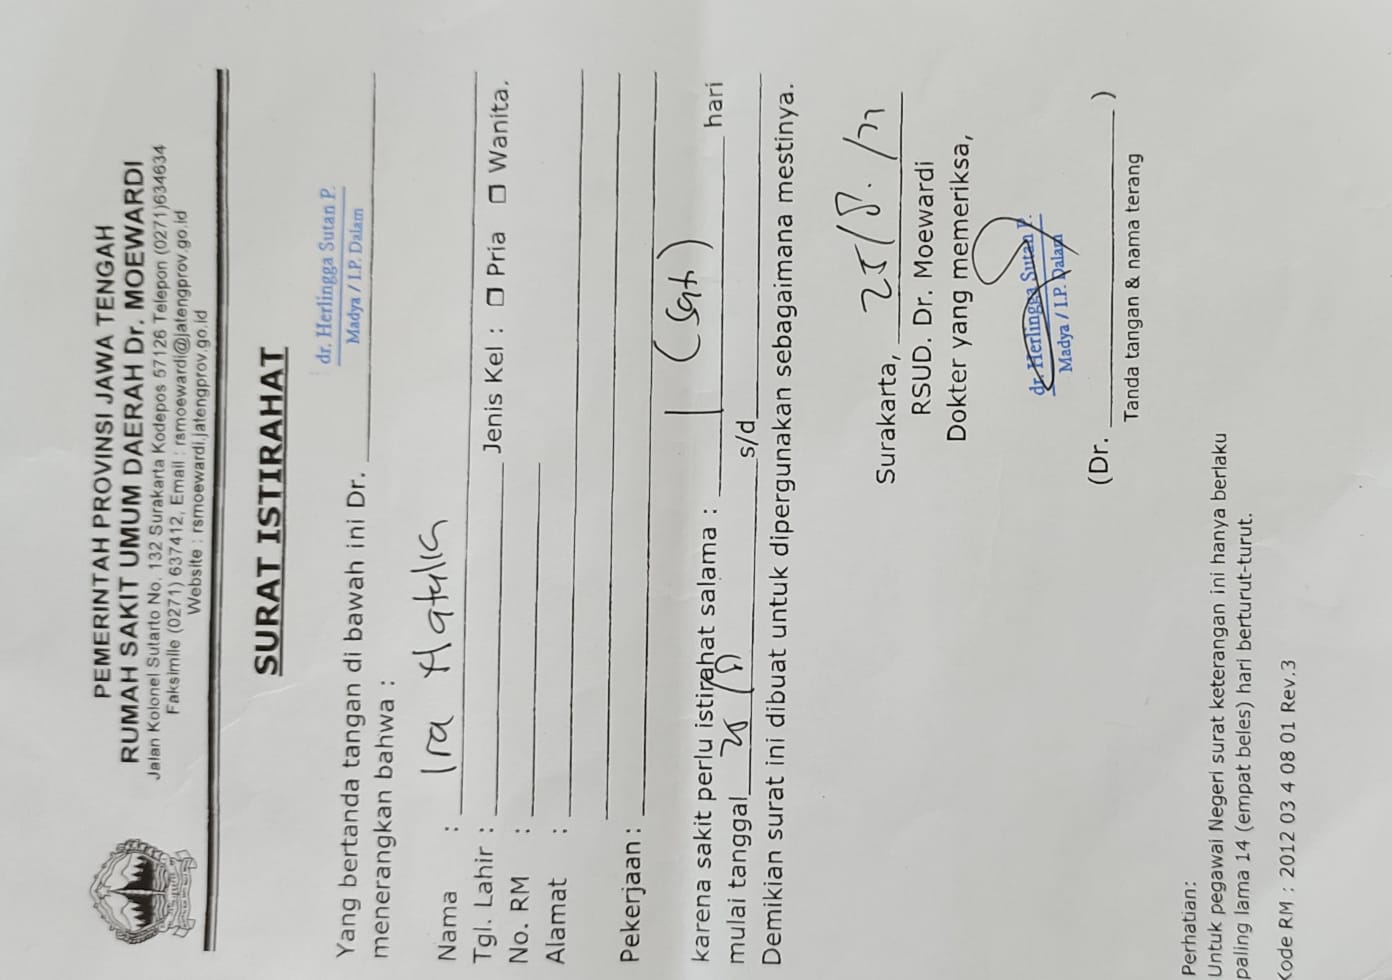 PEMERINTAH PROVINSI JAWA TENGAH
RUMAH SAKIT UMUM DAERAH Dr. MOEWARDI
Jalan Kolonel Sutarto No. 132 Surakarta Kodepos 57126 Telepon (0271)634634
Faksimile (0271) 637412, Email : rsmoewardi@jatengprov.go.id
Website : rsmoewardi.jatengprov.go.id
SURAT ISTIRAHAT
dr. Herlingga Sutan P.
Madya / I.P. Dalam
Yang bertanda tangan di bawah ini Dr.
menerangkan bahwa :
Nama : Ira
Tgl. Lahir : Jenis Kel : ☐ Pria ☐ Wanita.
No. RM :
Alamat :
Pekerjaan :
karena sakit perlu istirahat salama : 1 (Sat) hari
mulai tanggal s/d
Demikian surat ini dibuat untuk dipergunakan sebagaimana mestinya.
Surakarta,
RSUD. Dr. Moewardi
Dokter yang memeriksa,
dr. Herlingga Sutan P.
Madya / I.P. Dalam
(Dr. )
Tanda tangan & nama terang
Perhatian:
Untuk pegawai Negeri surat keterangan ini hanya berlaku
paling lama 14 (empat beles) hari berturut-turut.
Kode RM : 2012 03 4 08 01 Rev.3